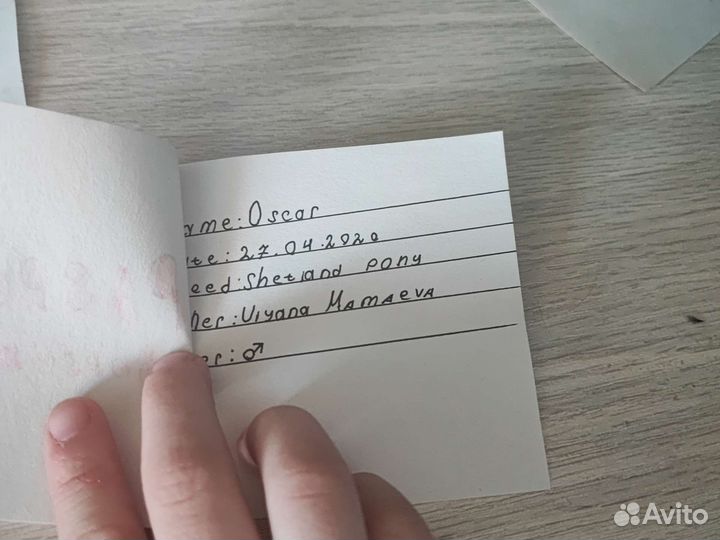 ame: Oscar
ate: 27.04.2020
eed: Shetland pony
ner: Uiyana Mamaeva
er: ♂
Avito